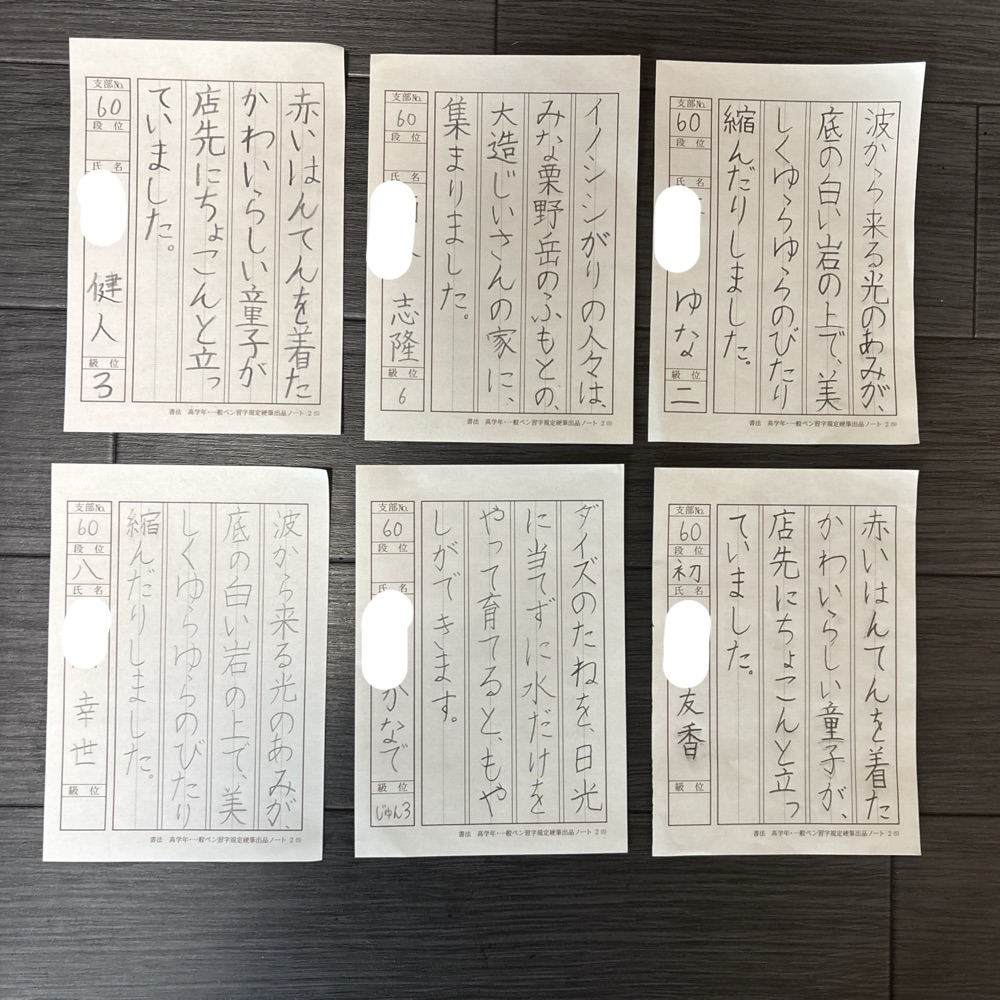 支部No.
60
段位
氏名
健人
級位
3
赤いはんてんを着た
かわいらしい童子が
店先にちょこんと立っ
ていました。
書法 高学年・一般ペン習字規定硬筆出品ノート 2
支部No.
60
段位
氏名
志隆
級位
6
イノシシがりの人々は、
みな栗野岳のふもとの、
大造じいさんの家に、
集まりました。
書法 高学年・一般ペン習字規定硬筆出品ノート 2
支部No.
60
段位
氏名
ゆな
級位
二
波から来る光のあみが、
底の白い岩の上で、美
しくゆらゆらのびたり
縮んだりしました。
書法 高学年・一般ペン習字規定硬筆出品ノート 2
支部No.
60
段位
八
氏名
幸世
級位
波から来る光のあみが、
底の白い岩の上で、美
しくゆらゆらのびたり
縮んだりしました。
書法 高学年・一般ペン習字規定硬筆出品ノート 2
支部No.
60
段位
氏名
かなで
級位
じゅん3
ダイズのたねを、日光
に当てずに水だけを
やって育てると、もや
しができます。
書法 高学年・一般ペン習字規定硬筆出品ノート 2
支部No.
60
段位
初
氏名
友香
級位
赤いはんてんを着た
かわいらしい童子が、
店先にちょこんと立っ
ていました。
書法 高学年・一般ペン習字規定硬筆出品ノート 2